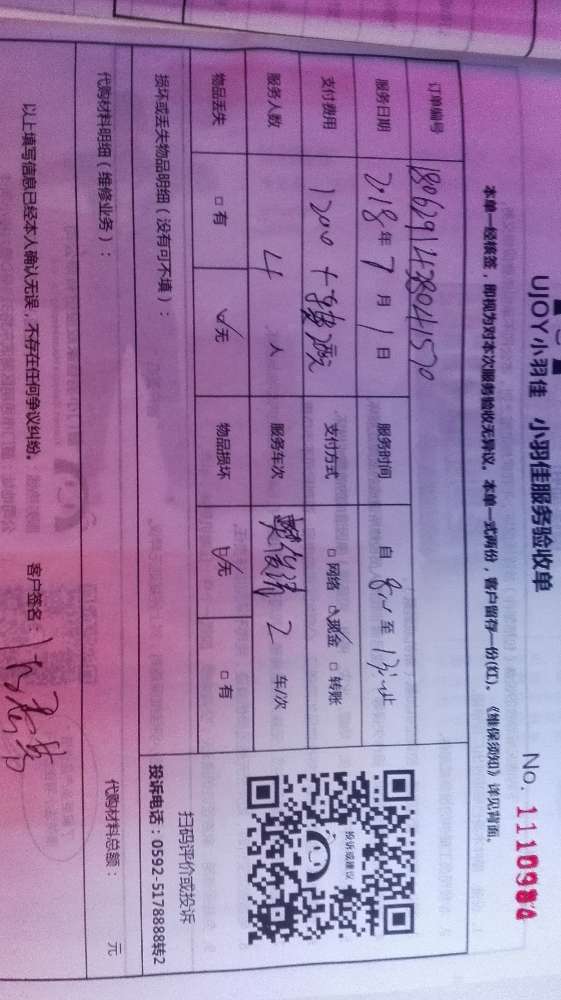 UJOY小羽佳 小羽佳服务验收单
No. 1110984
本单一经核签，即视为对本次服务验收无异议。本单一式两份，客户留存一份(红)。《维保须知》详见背面。
订单编号
服务日期 2018年 7 月 1 日 服务时间 自 8:00 至
支付费用 1200 支付方式 □网络 ☑现金 □转账
服务人数 4 人 服务车次 2 车/次
物品丢失 □有 ☑无 物品损坏 ☑无 □有
损坏或丢失物品明细（没有可不填）：
投诉或建议
扫码评价或投诉
投诉电话：0592-5178888转2
代购材料明细（维修业务）： 代购材料总额： 元
以上填写信息已经本人确认无误，不存在任何争议纠纷。 客户签名：